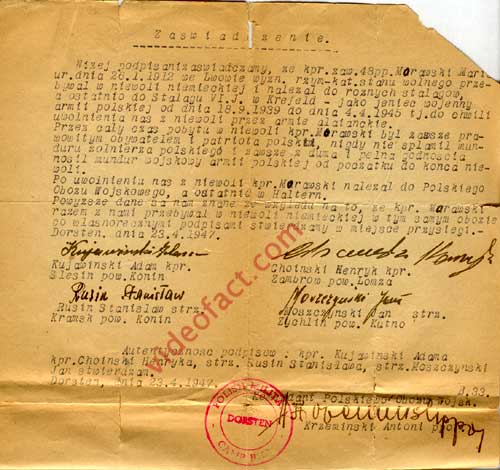 Zaswiadczenie.
Nizej podpisani zaswiadczamy, ze kpr.zaw.48pp.Morawski Mari
ur.dnia 26.1.1912 we Lwowie wyzn. rzym-kat.stanu wolnego prze-
bywal w niewoli niemieckiej i nalezal do roznych stalagow,
a ostatnio do Stalagu VI.J. w Krefeld - jako jeniec wojenny
armii polskiej od dnia 18.9.1939 do dnia 4.4.1945 tj.do chwili
uwolnienia nas z niewoli przez armie alianckie.
Przez caly czas pobytu w niewoli kpr.Morawski byl zawsze pra-
womitym obywatelem i patriota polskim, nigdy nie splamil mun-
duru zolnierza polskiego i zawsze z duma i pelna godnoscia
nosil mundur wojskowy armii polskiej od poczatku do konca nie-
woli.
Po uwolnieniu nas z niewoli kpr.Morawski nalezal do Polskiego
Obozu Wojskowego, a ostatnio w Haltern.
Powyzsze dane sa nam znane ze wzgledu na to, ze kpr. Morawski
razem z nami przebywal w niewoli niemieckiej w tym samym obozie
co wlasnorecznymi podpisami stwierdzamy w miejsce przysiegi.-
Dorsten, dnia 23.4.1947.
Kujawinski Adam kpr. Choinski Henryk kpr.
Slesin pow.Konin Zambrow pow.Lomza
Rusin Stanisław
Rusin Stanislaw strz. Moszczynski Jan strz.
Kramsk pow. Konin Zychlin pow. Kutno
Autentycznosc podpisow : kpr. Kujawinski Adama
kpr.Choinski Henryka, strz. Rusin Stanislawa, strz. Moszczynski
Jan stwierdzam.
Dorsten, dnia 23.4.1947.
Komendant Polskiego Obozu Wojsk.
POLISH MILIT.
DORSTEN
CAMP
Krzeminski Antoni ppor.
wideofact.com